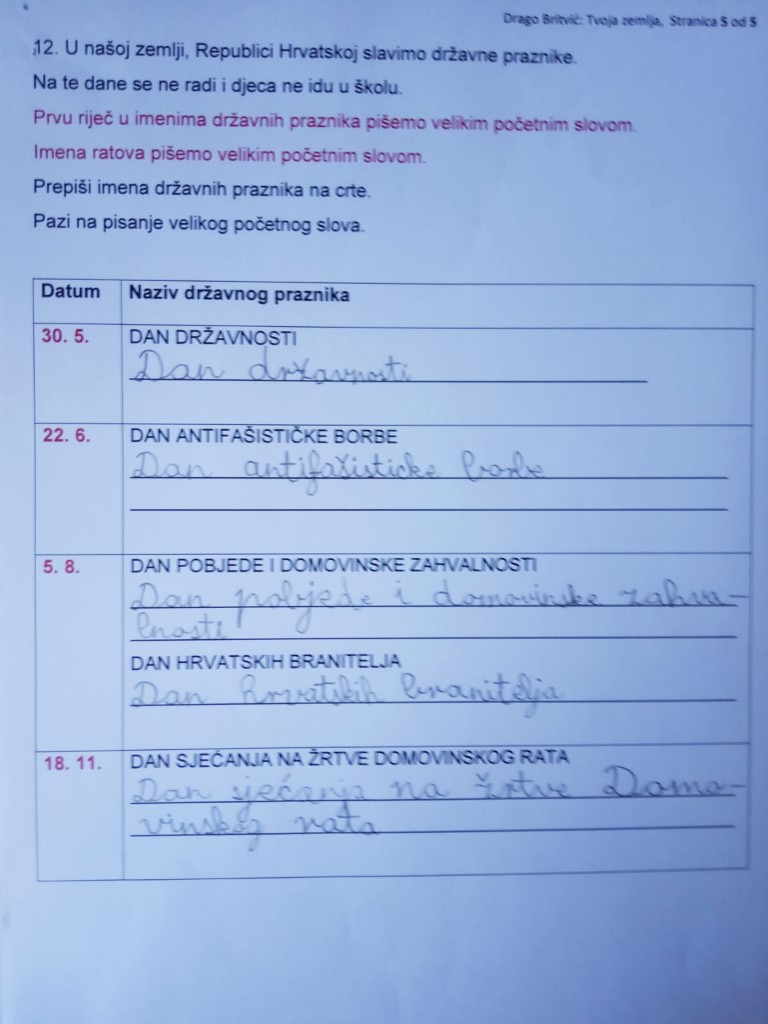 Drago Britvić: Tvoja zemlja, Stranica 5 od 5
12. U našoj zemlji, Republici Hrvatskoj slavimo državne praznike.
Na te dane se ne radi i djeca ne idu u školu.
Prvu riječ u imenima državnih praznika pišemo velikim početnim slovom.
Imena ratova pišemo velikim početnim slovom.
Prepiši imena državnih praznika na crte.
Pazi na pisanje velikog početnog slova.
Datum Naziv državnog praznika
30. 5. DAN DRŽAVNOSTI
Dan državnosti
22. 6. DAN ANTIFAŠISTIČKE BORBE
Dan antifašisticke borbe
5. 8. DAN POBJEDE I DOMOVINSKE ZAHVALNOSTI
Dan pobjede i domovinske zahva-
lnosti
DAN HRVATSKIH BRANITELJA
Dan hrvatskih branitelja
18. 11. DAN SJEĆANJA NA ŽRTVE DOMOVINSKOG RATA
Dan sjećanja na žrtve Domo-
vinskog rata